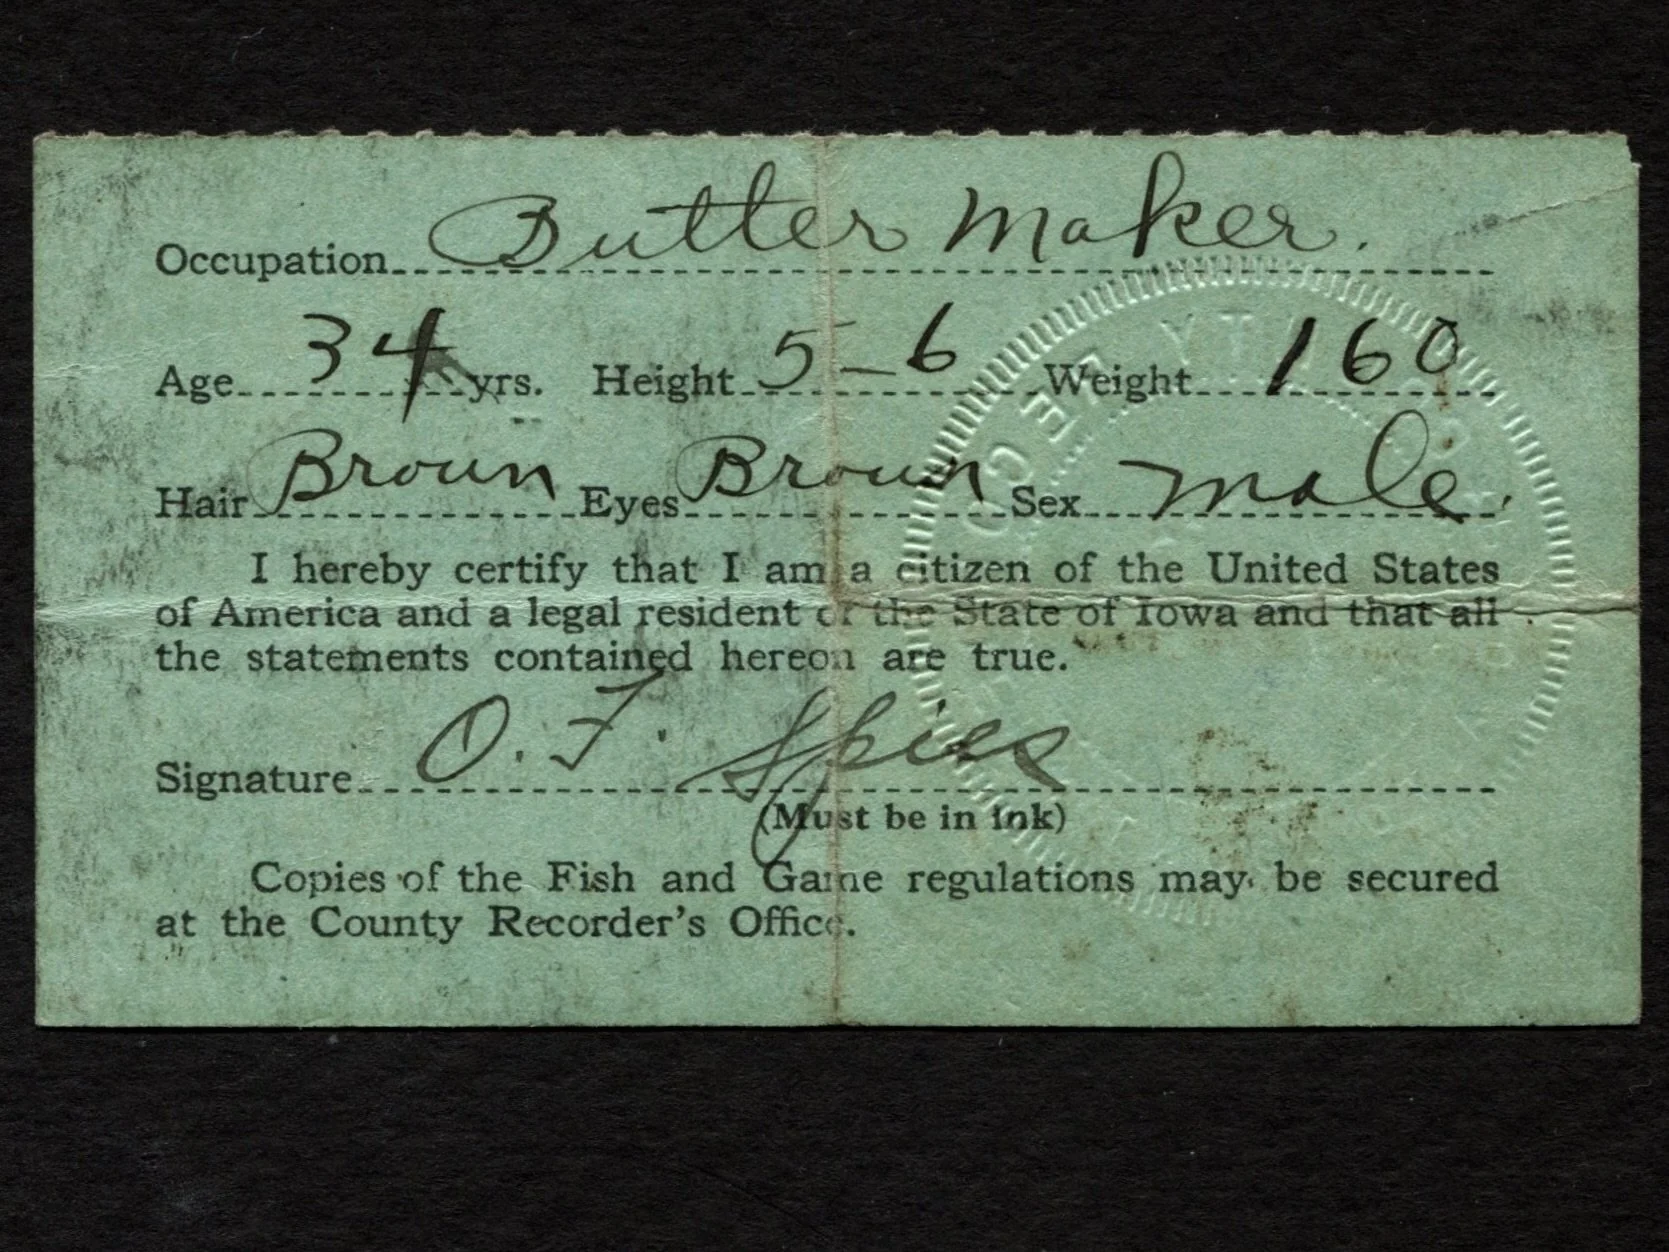 Occupation Butter Maker.
Age 34 yrs. Height 5-6 Weight 160
Hair Broun Eyes Broun Sex male.
I hereby certify that I am a citizen of the United States
of America and a legal resident of the State of Iowa and that all
the statements contained hereon are true.
Signature O. F. Spies
(Must be in ink)
Copies of the Fish and Game regulations may be secured
at the County Recorder's Office.